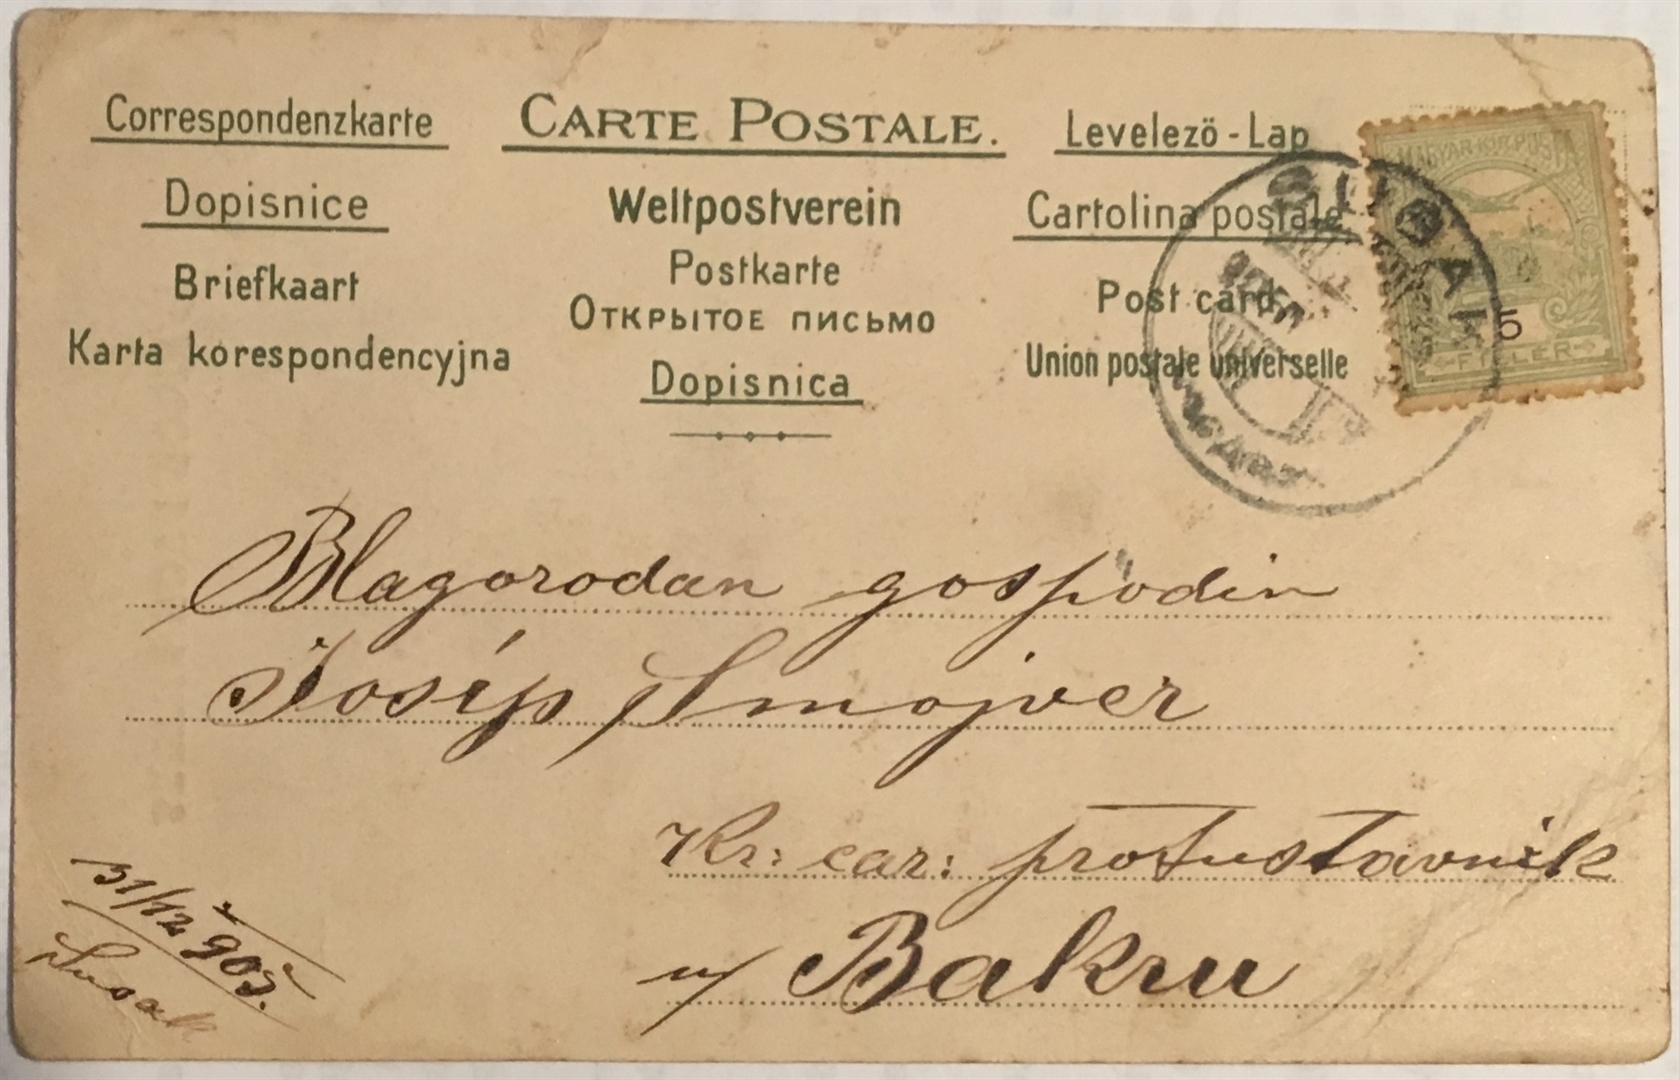 Correspondenzkarte
Dopisnice
Briefkaart
Karta korespondencyjna
CARTE POSTALE.
Weltpostverein
Postkarte
ОТКРЫТОЕ ПИСЬМО
Dopisnica
Levelező - Lap
Cartolina postale
Post card
Union postale universelle
MAGYAR KIR. POSTA
5
FILLÉR
Blagorodan gospodin
Josip Smojver
Kr: car: protustavnik
u Bakru
31/12 905.
Sušak